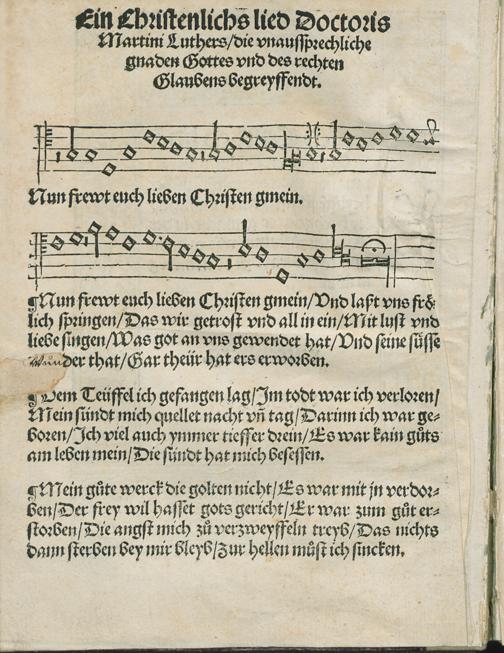 Ein Christenlichs lied Doctoris
Martini Luthers/die vnaussprechliche
gnaden Gottes vnd des rechten
Glaubens begreyffendt.
Nun frewt euch lieben Christen gmein.
¶Nun frewt euch lieben Christen gmein/Vnd laßt vns frö-
lich springen/Das wir getrost vnd all in ein/Mit lust vnd
liebe singen/Was got an vns gewendet hat/Vnd seine süsse
wunder that/Gar theür hat ers erworben.
¶Dem Teüffel ich gefangen lag/Im todt war ich verloren/
Mein sündt mich quellet nacht vñ tag/Darinn ich war ge-
boren/Ich viel auch ymmer tieffer drein/Es war kain gůts
am leben mein/Die sündt hat mich besessen.
¶Mein gůte werck die golten nicht/Es war mit jn verdor-
ben/Der frey wil hasset gots gericht/Er war zum gůt er-
storben/Die angst mich zů verzweyffeln treyb/Das nichts
dann sterben bey mir bleyb/Zur hellen můst ich sincken.